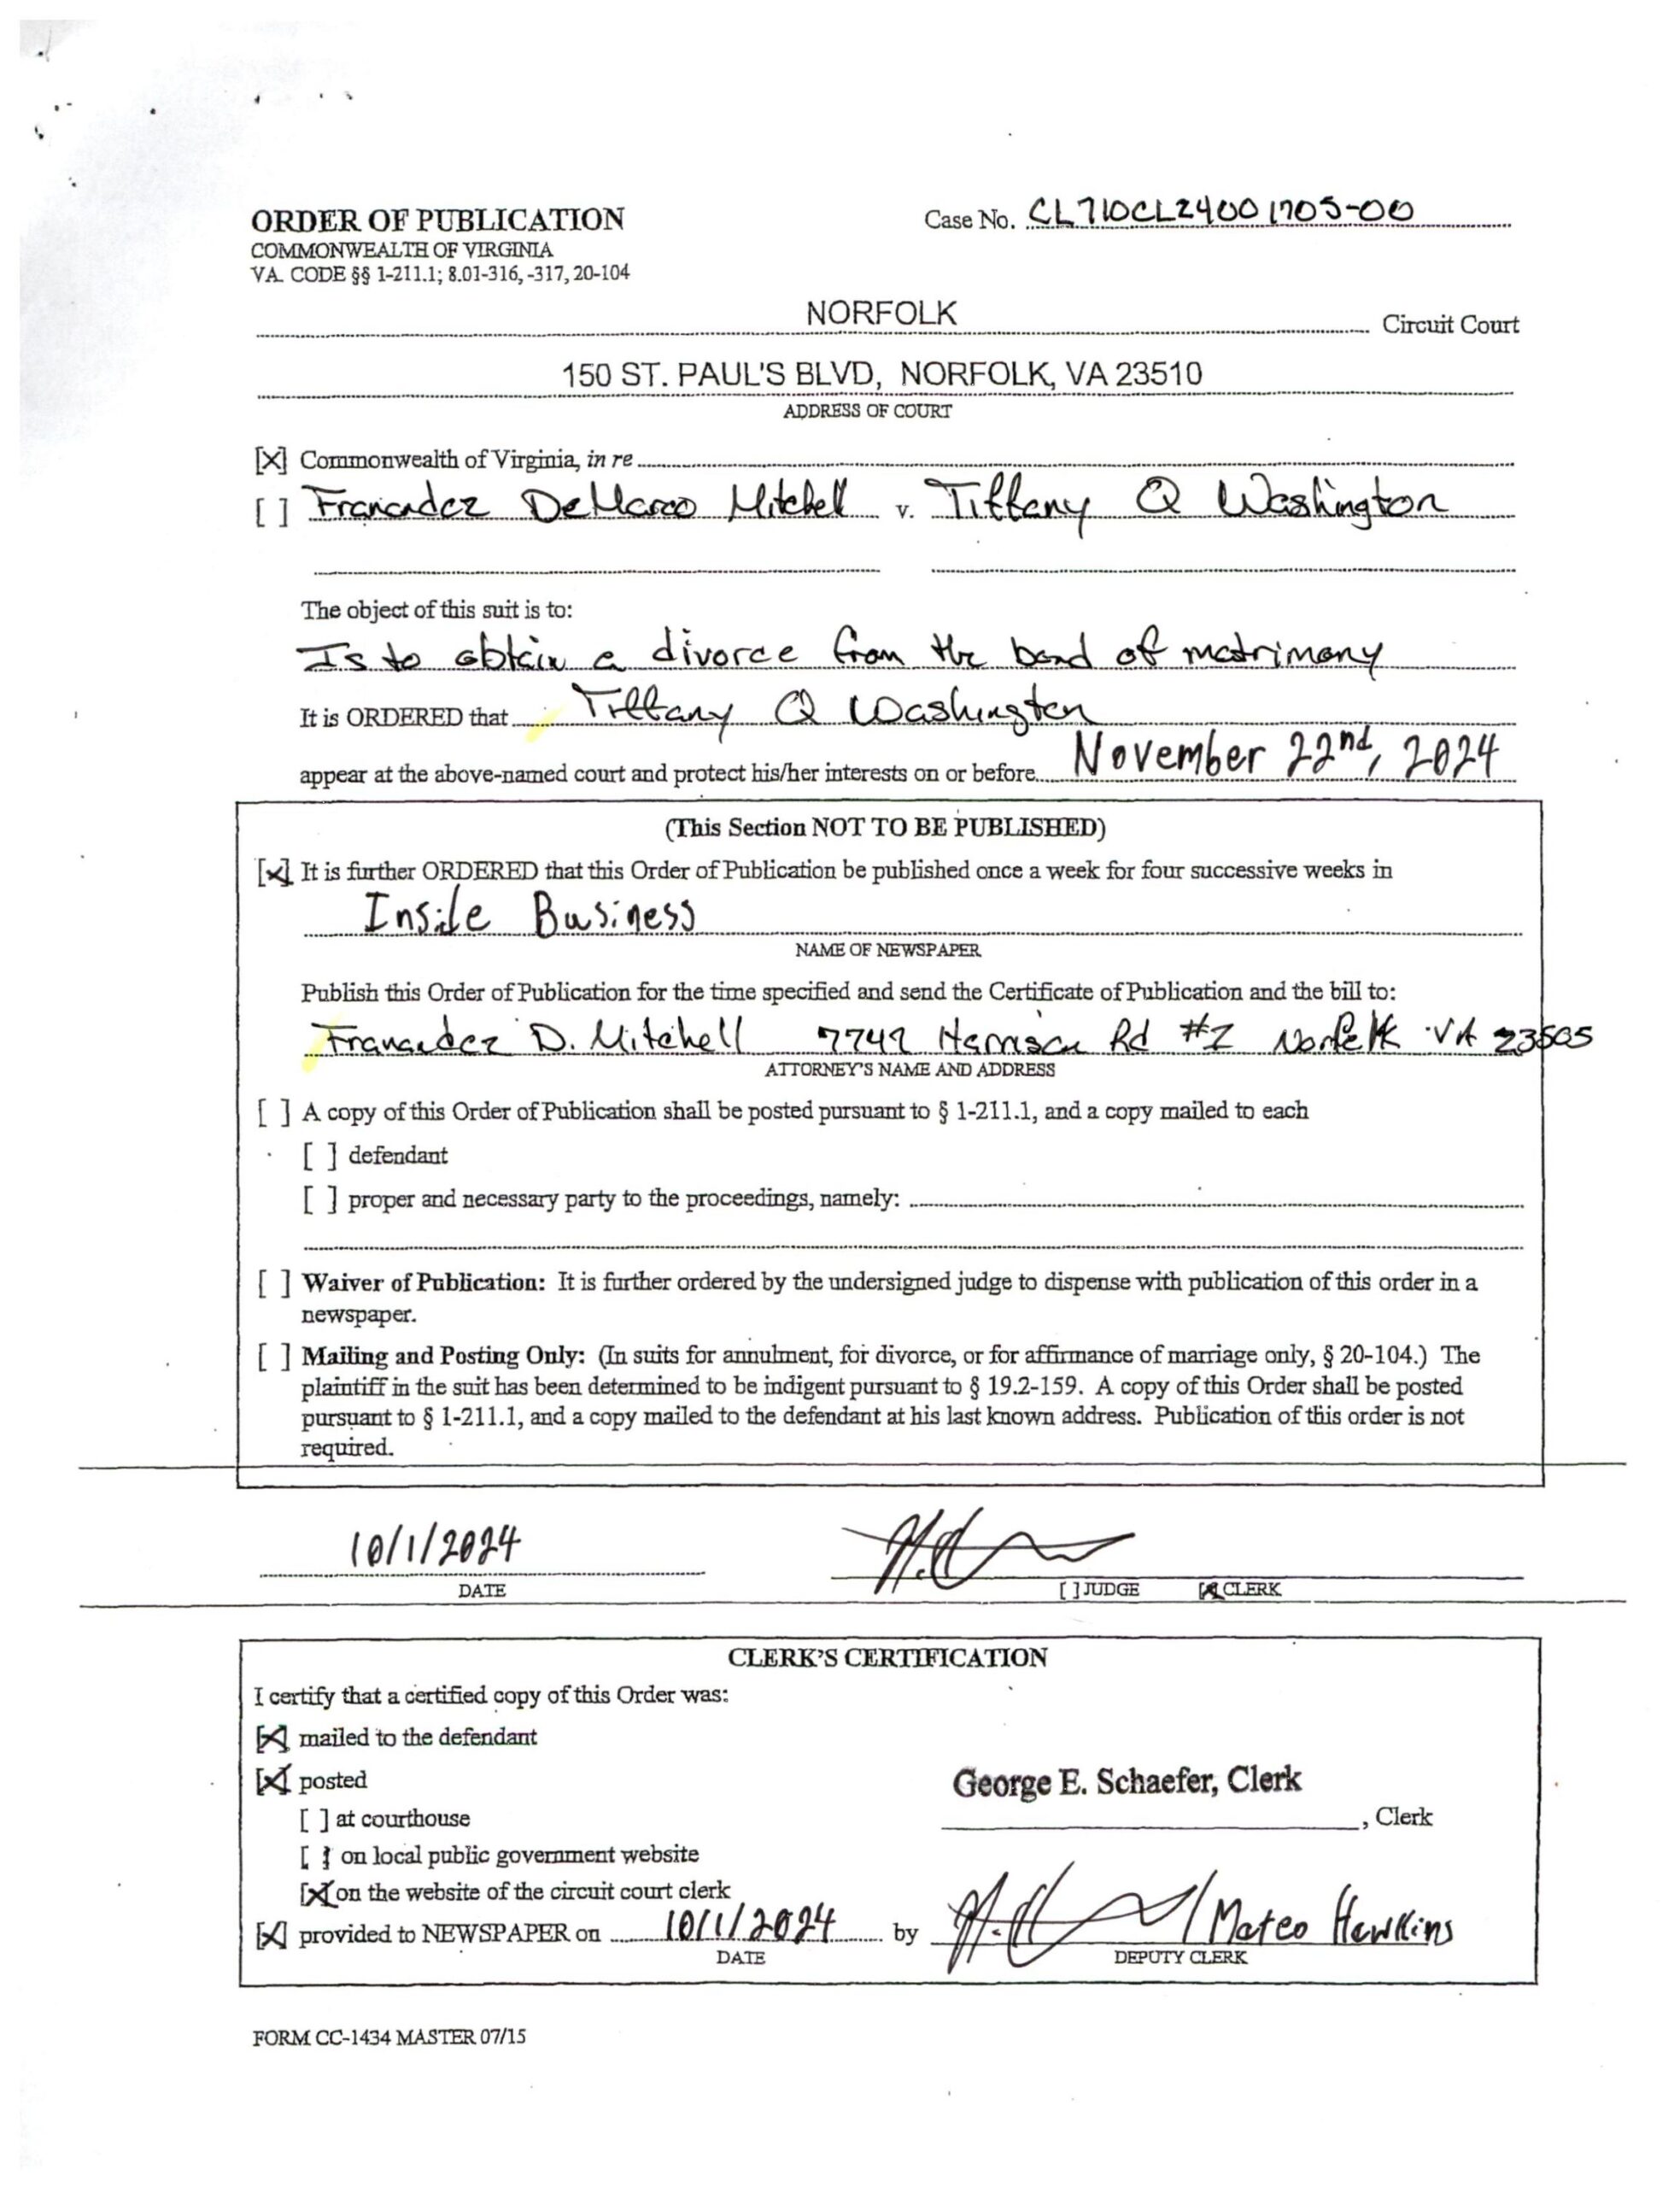 ORDER OF PUBLICATION
COMMONWEALTH OF VIRGINIA
VA. CODE §§ 1-211.1; 8.01-316, -317, 20-104
Case No. CL710CL24001705-00
NORFOLK Circuit Court
150 ST. PAUL'S BLVD, NORFOLK, VA 23510
ADDRESS OF COURT
[X] Commonwealth of Virginia, in re
[ ] DeMarco Mitchell v. Tiffany Q Washington
The object of this suit is to:
Is to obtain a divorce from the bond of matrimony
It is ORDERED that Tiffany Q Washington
appear at the above-named court and protect his/her interests on or before November 22nd, 2024
(This Section NOT TO BE PUBLISHED)
[x] It is further ORDERED that this Order of Publication be published once a week for four successive weeks in
Inside Business
NAME OF NEWSPAPER
Publish this Order of Publication for the time specified and send the Certificate of Publication and the bill to:
D. Mitchell Rd Norfolk VA 23505
ATTORNEY'S NAME AND ADDRESS
[ ] A copy of this Order of Publication shall be posted pursuant to § 1-211.1, and a copy mailed to each
[ ] defendant
[ ] proper and necessary party to the proceedings, namely:
[ ] Waiver of Publication: It is further ordered by the undersigned judge to dispense with publication of this order in a
newspaper.
[ ] Mailing and Posting Only: (In suits for annulment, for divorce, or for affirmance of marriage only, § 20-104.) The
plaintiff in the suit has been determined to be indigent pursuant to § 19.2-159. A copy of this Order shall be posted
pursuant to § 1-211.1, and a copy mailed to the defendant at his last known address. Publication of this order is not
required.
10/1/2024
DATE
[ ] JUDGE [X] CLERK
CLERK'S CERTIFICATION
I certify that a certified copy of this Order was:
[X] mailed to the defendant
[X] posted
[ ] at courthouse
[ ] on local public government website
[X] on the website of the circuit court clerk
[X] provided to NEWSPAPER on 10/1/2024 by
DATE
George E. Schaefer, Clerk
, Clerk
/ Mateo Hawkins
DEPUTY CLERK
FORM CC-1434 MASTER 07/15